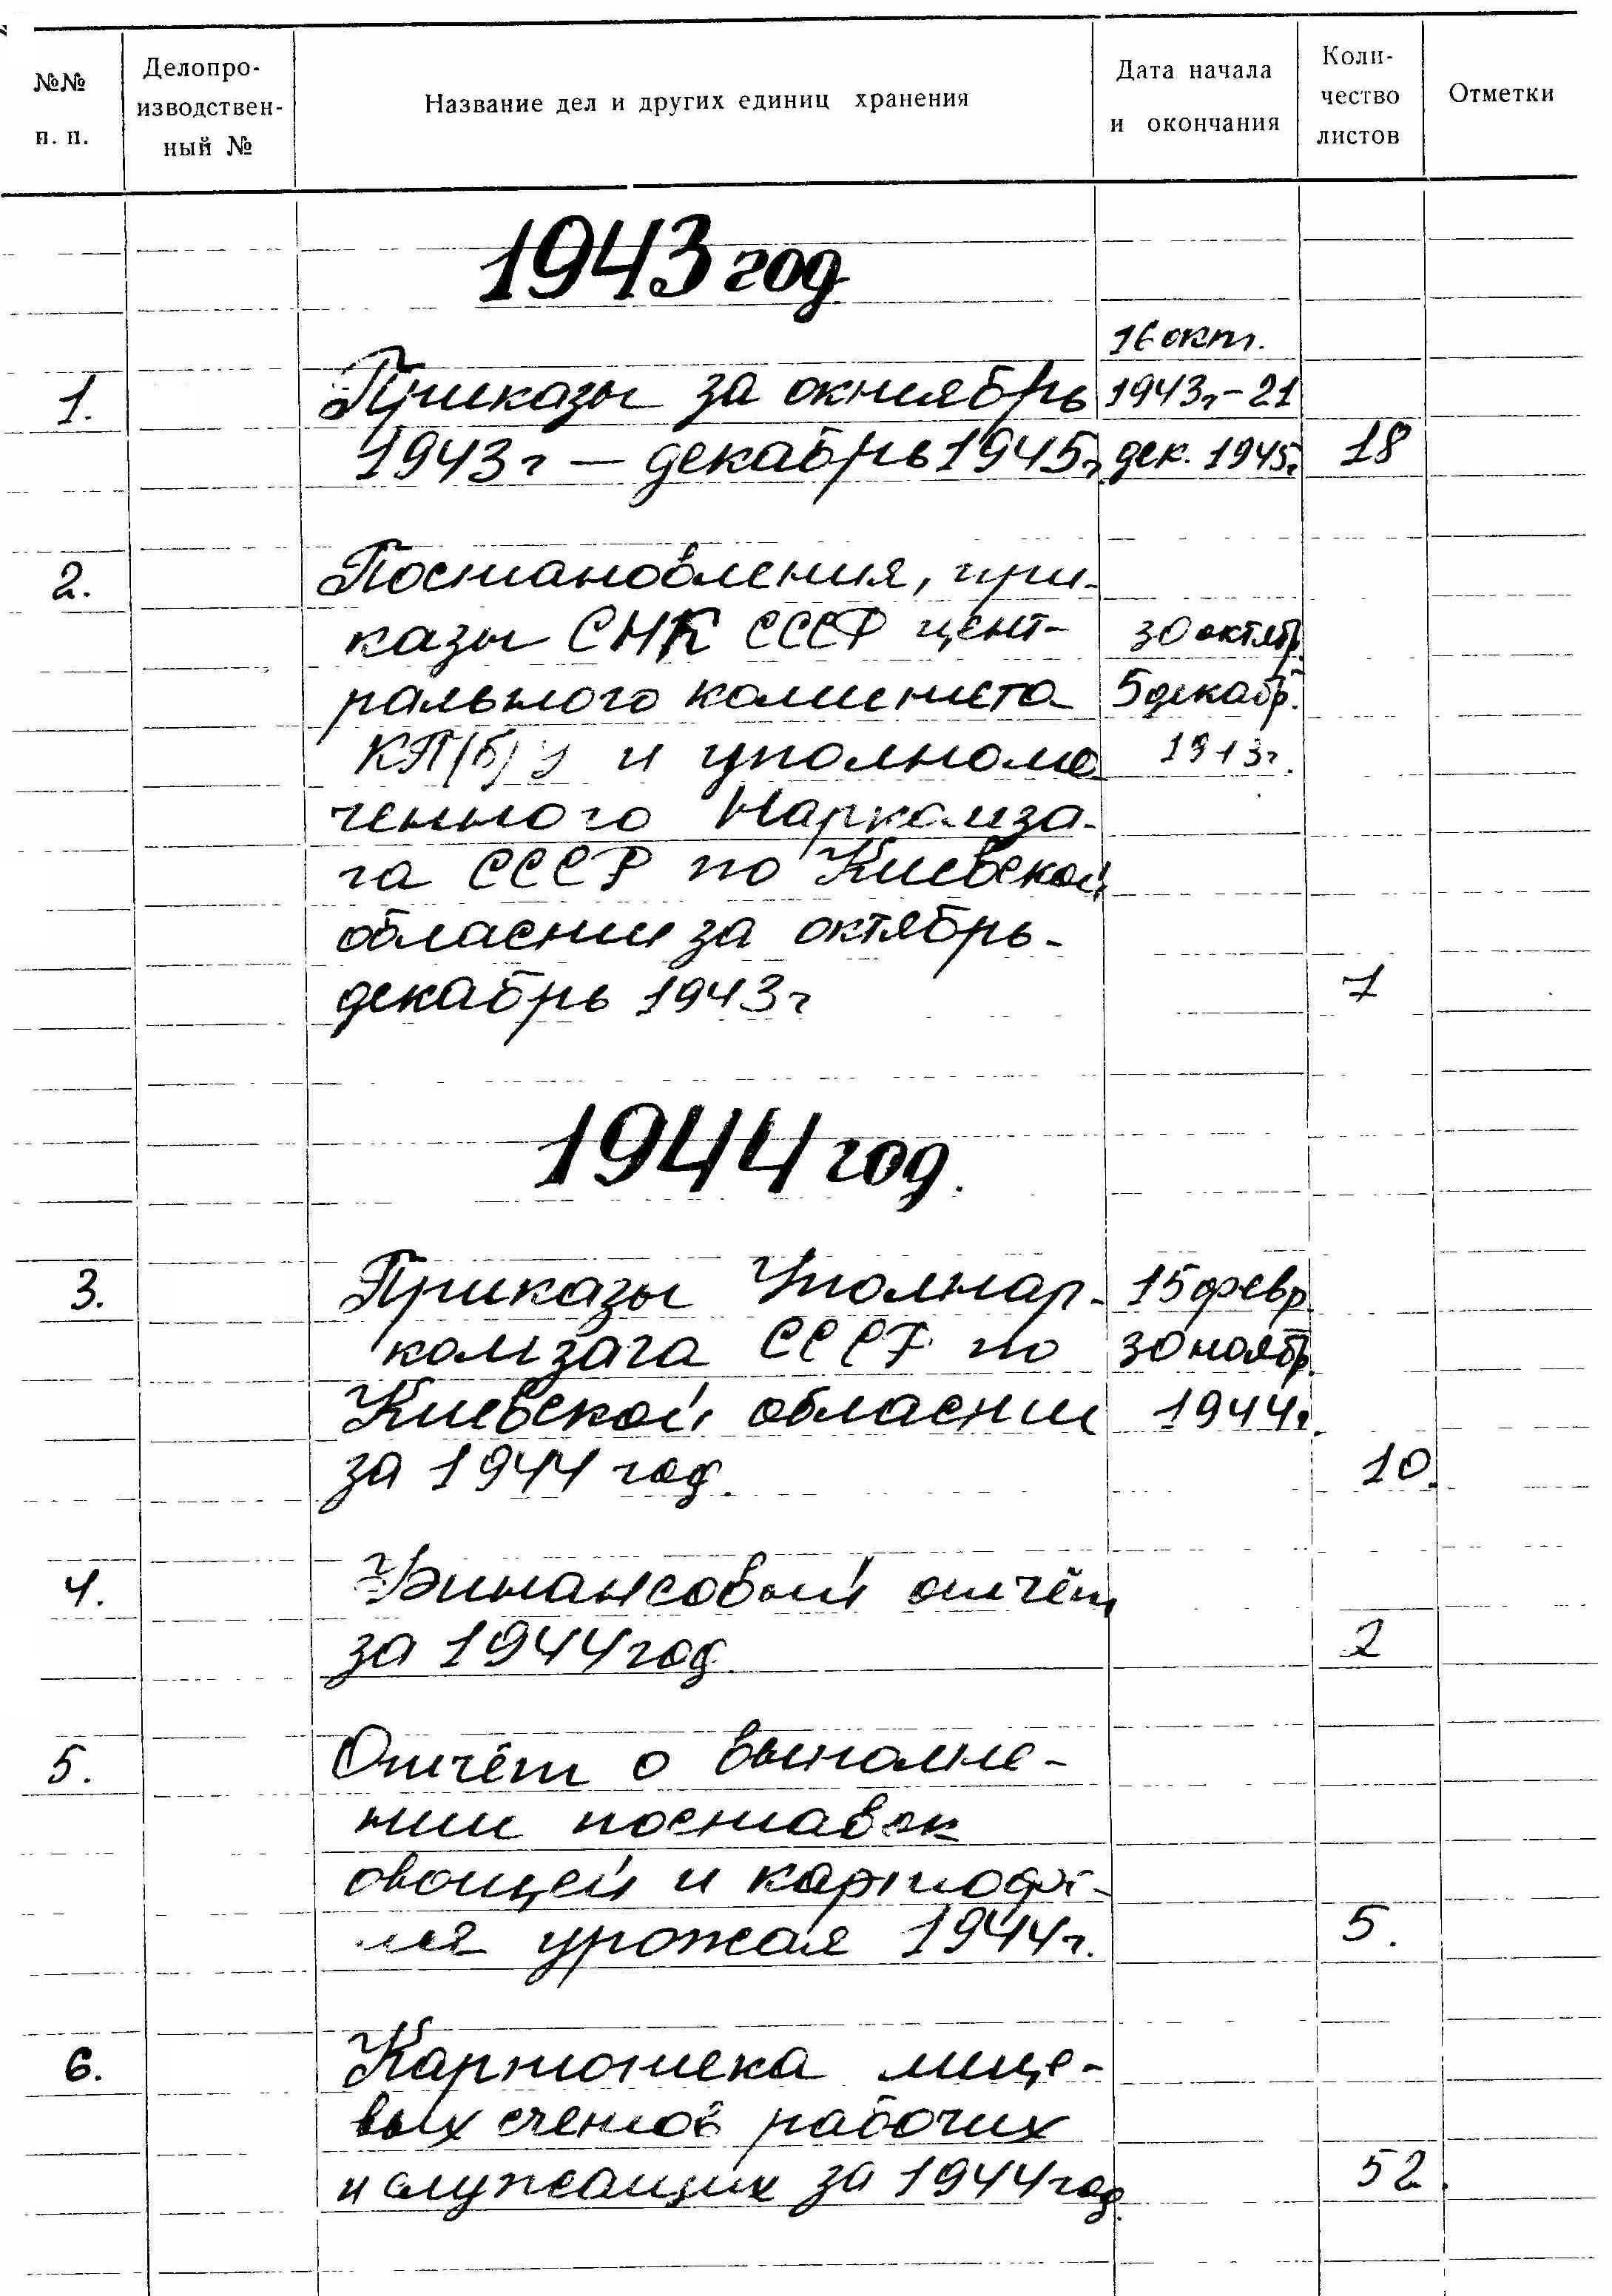 №№ п. п.
Делопро-
изводствен-
ный №
Название дел и других единиц хранения
Дата начала
и окончания
Коли-
чество
листов
Отметки
1943 год
16 окт.
1. Приказы за октябрь 1943г-21
1943г — декабрь 1945г. дек. 1945г. 18
2. Постановления, при-
казы СНК СССР цент- 30 октябр.
рального комитета 5 декабр.
КП(б)У и уполномо 1943г.
ченного Наркомза-
га СССР по Киевской
области за октябрь-
декабрь 1943г 7
1944 год.
3. Приказы Уполнар- 15 февр.
комзага СССР по 30 ноябр.
Киевской области 1944г.
за 1944 год. 10.
4. Финансовый отчёт
за 1944 год 2
5. Отчёт о выполне-
нии поставок
овощей и картофе-
ля урожая 1944г. 5.
6. Картотека лице-
вых счетов рабочих
и служащих за 1944 год. 52.